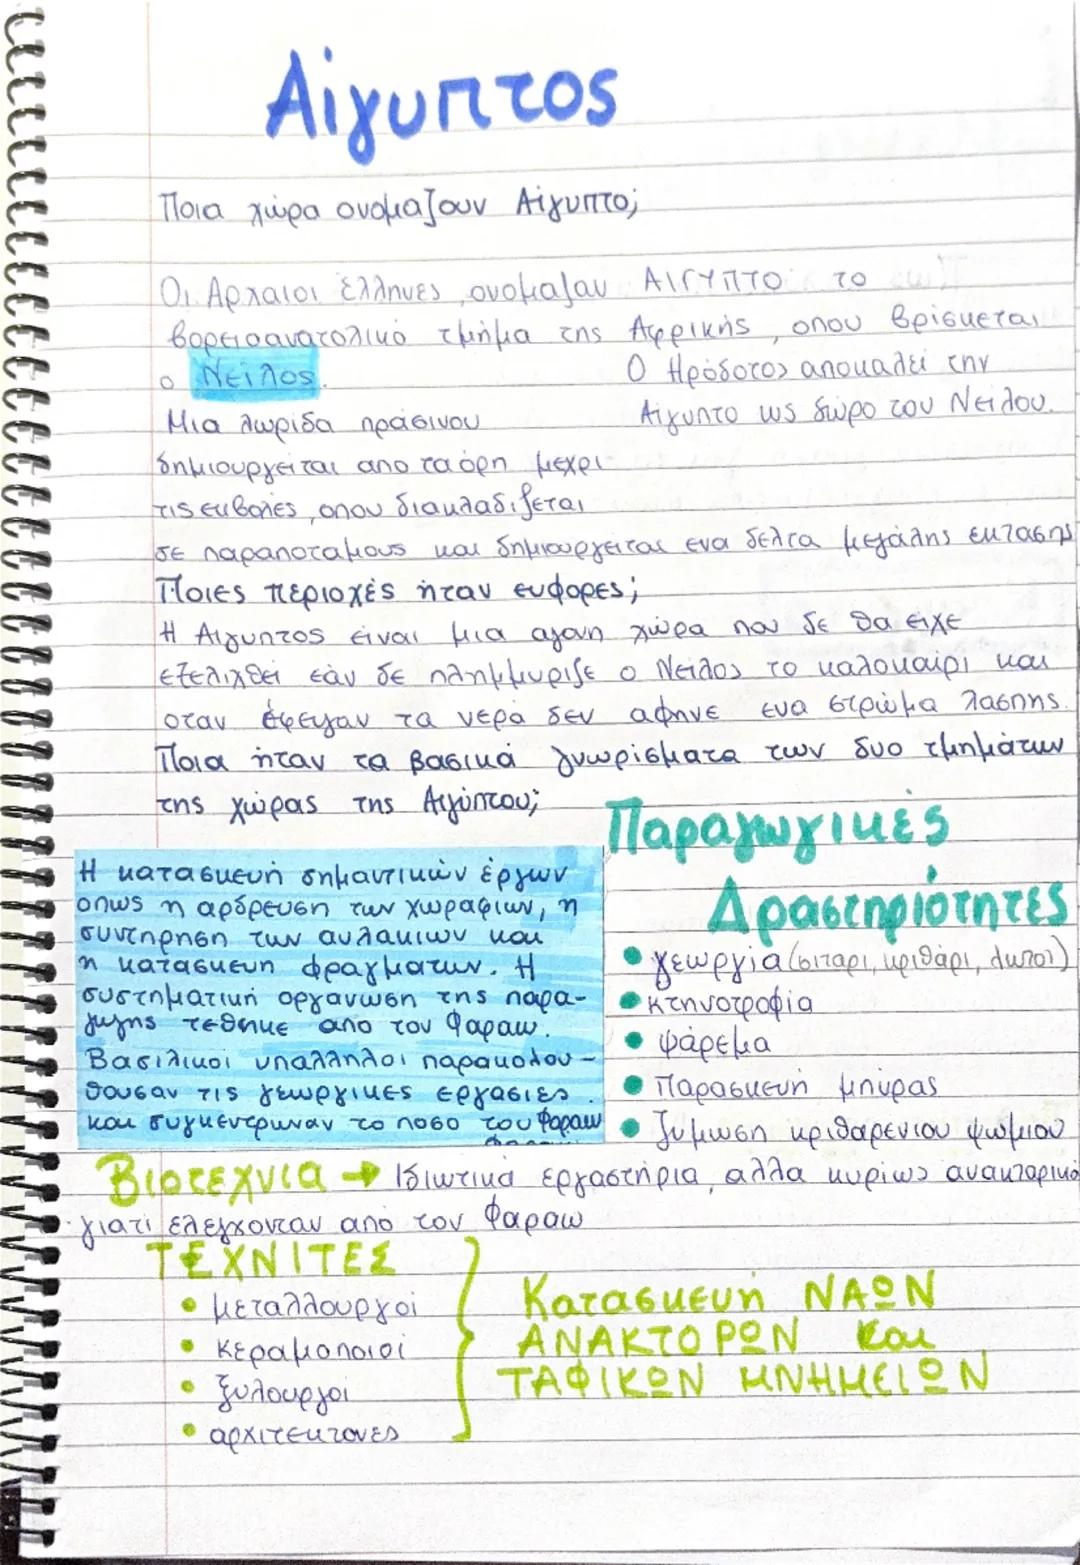 Αίγυπτος
Ποια χώρα ονομαζουν Αίγυπτο;
Οι Αρχαιοι έλληνες, ονομαζαν ΑΙΓΥΠΤΟ το
βορειοανατολικό τμήμα της Αφρικής, οπου βρίσκεται
ο Νείλος.
Ο Ηρόδοτος αποκαλεί την
Αίγυπτο ως δώρο του Νείλου.
Μια λωρίδα πράσινου
δημιουργειται απο τα όρη μεχρι
τις εκβολές, οπου διακλαδιζεται
σε παραποταμους και δημιουργειται ενα δελτα μεγάλης εκτασης
Ποιες περιοχές ήταν ευφορες;
Η Αιγυπτος είναι μια αγονη χώρα που δε θα ειχε
εξελιχθεί εάν δε πλημμυριζε ο Νείλος το καλοκαιρι και
οταν έφευγαν τα νερά δεν αφηνε ενα στρώμα λασπης.
Ποια ήταν τα βασικά γνωρίσματα των δυο τμημάτων
της χώρας της Αιγύπτου;
Η κατασκευή σημαντικών έργων
οπως η αρδρευση των χωραφιων, η
συντηρηση των αυλακιων και
η κατασκευη φραγματων. Η
συστηματική οργανωση της παρα-
γωγης τεθηκε απο τον Φαραω.
Βασιλικοι υπαλληλοι παρακολου-
θουσαν τις γεωργικες εργασιες
και συγκεντρωναν το ποσο του Φαραω
Παραγωγικές
Δραστηριότητες
• γεωργία (σιταρι, κριθάρι, λωποι)
• κτηνοτροφία
• ψάρεμα
• Παρασκευή μπύρας
• ζυμωση κριθαρενιου ψωμιου
Βιοτεχνια → Ιδιωτικά εργαστήρια, αλλα κυρίως ανακτορικά
γιατι ελεγχονταν απο τον Φαραω
ΤΕΧΝΙΤΕΣ
• μεταλλουργοί
• κεραμοποιοί
• ξυλουργοί
• αρχιτεκτονες
Κατασκευή ΝΑΩΝ
ΑΝΑΚΤΟΡΩΝ και
ΤΑΦΙΚΩΝ ΜΝΗΜΕΙΩΝ